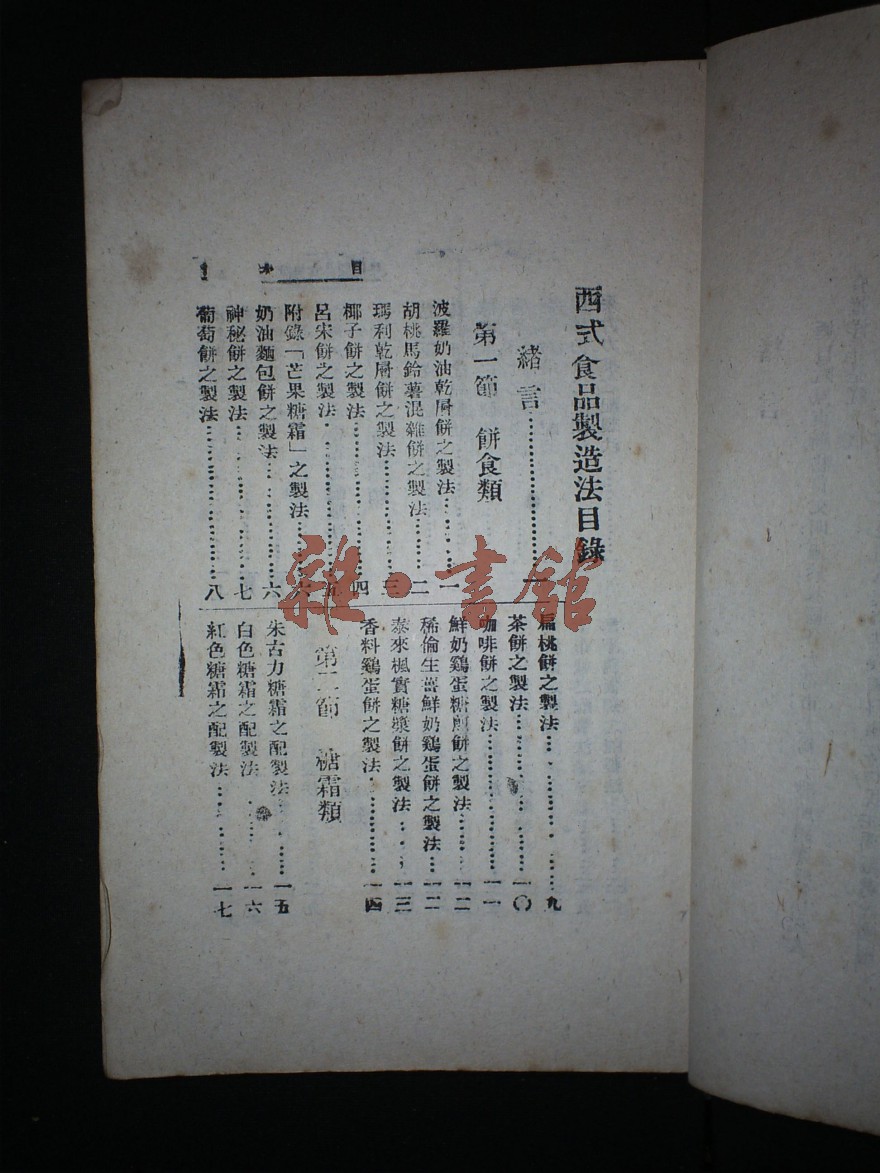 西式食品製造法目錄
緒言……………………一
第一節　餅食類
波羅奶油乾屑餅之製法………一
胡桃馬鈴薯混雜餅之製法………二
瑪利乾屑餅之製法………三
椰子餅之製法………四
呂宋餅之製法………五
附錄「芒果糖霜」之製法………六
奶油麵包餅之製法………六
神秘餅之製法………七
葡萄餅之製法………八
扁桃餅之製法………九
茶餅之製法………一〇
咖啡餅之製法………一一
鮮奶鷄蛋糖煎餅之製法………一二
稀倫生薑鮮奶鷄蛋餅之製法………一二
泰來楓實糖漿餅之製法………一三
香料鷄蛋餅之製法………一四
第二節　糖霜類
朱古力糖霜之配製法………一五
白色糖霜之配製法………一六
紅色糖霜之配製法………一七
目
雜·書館